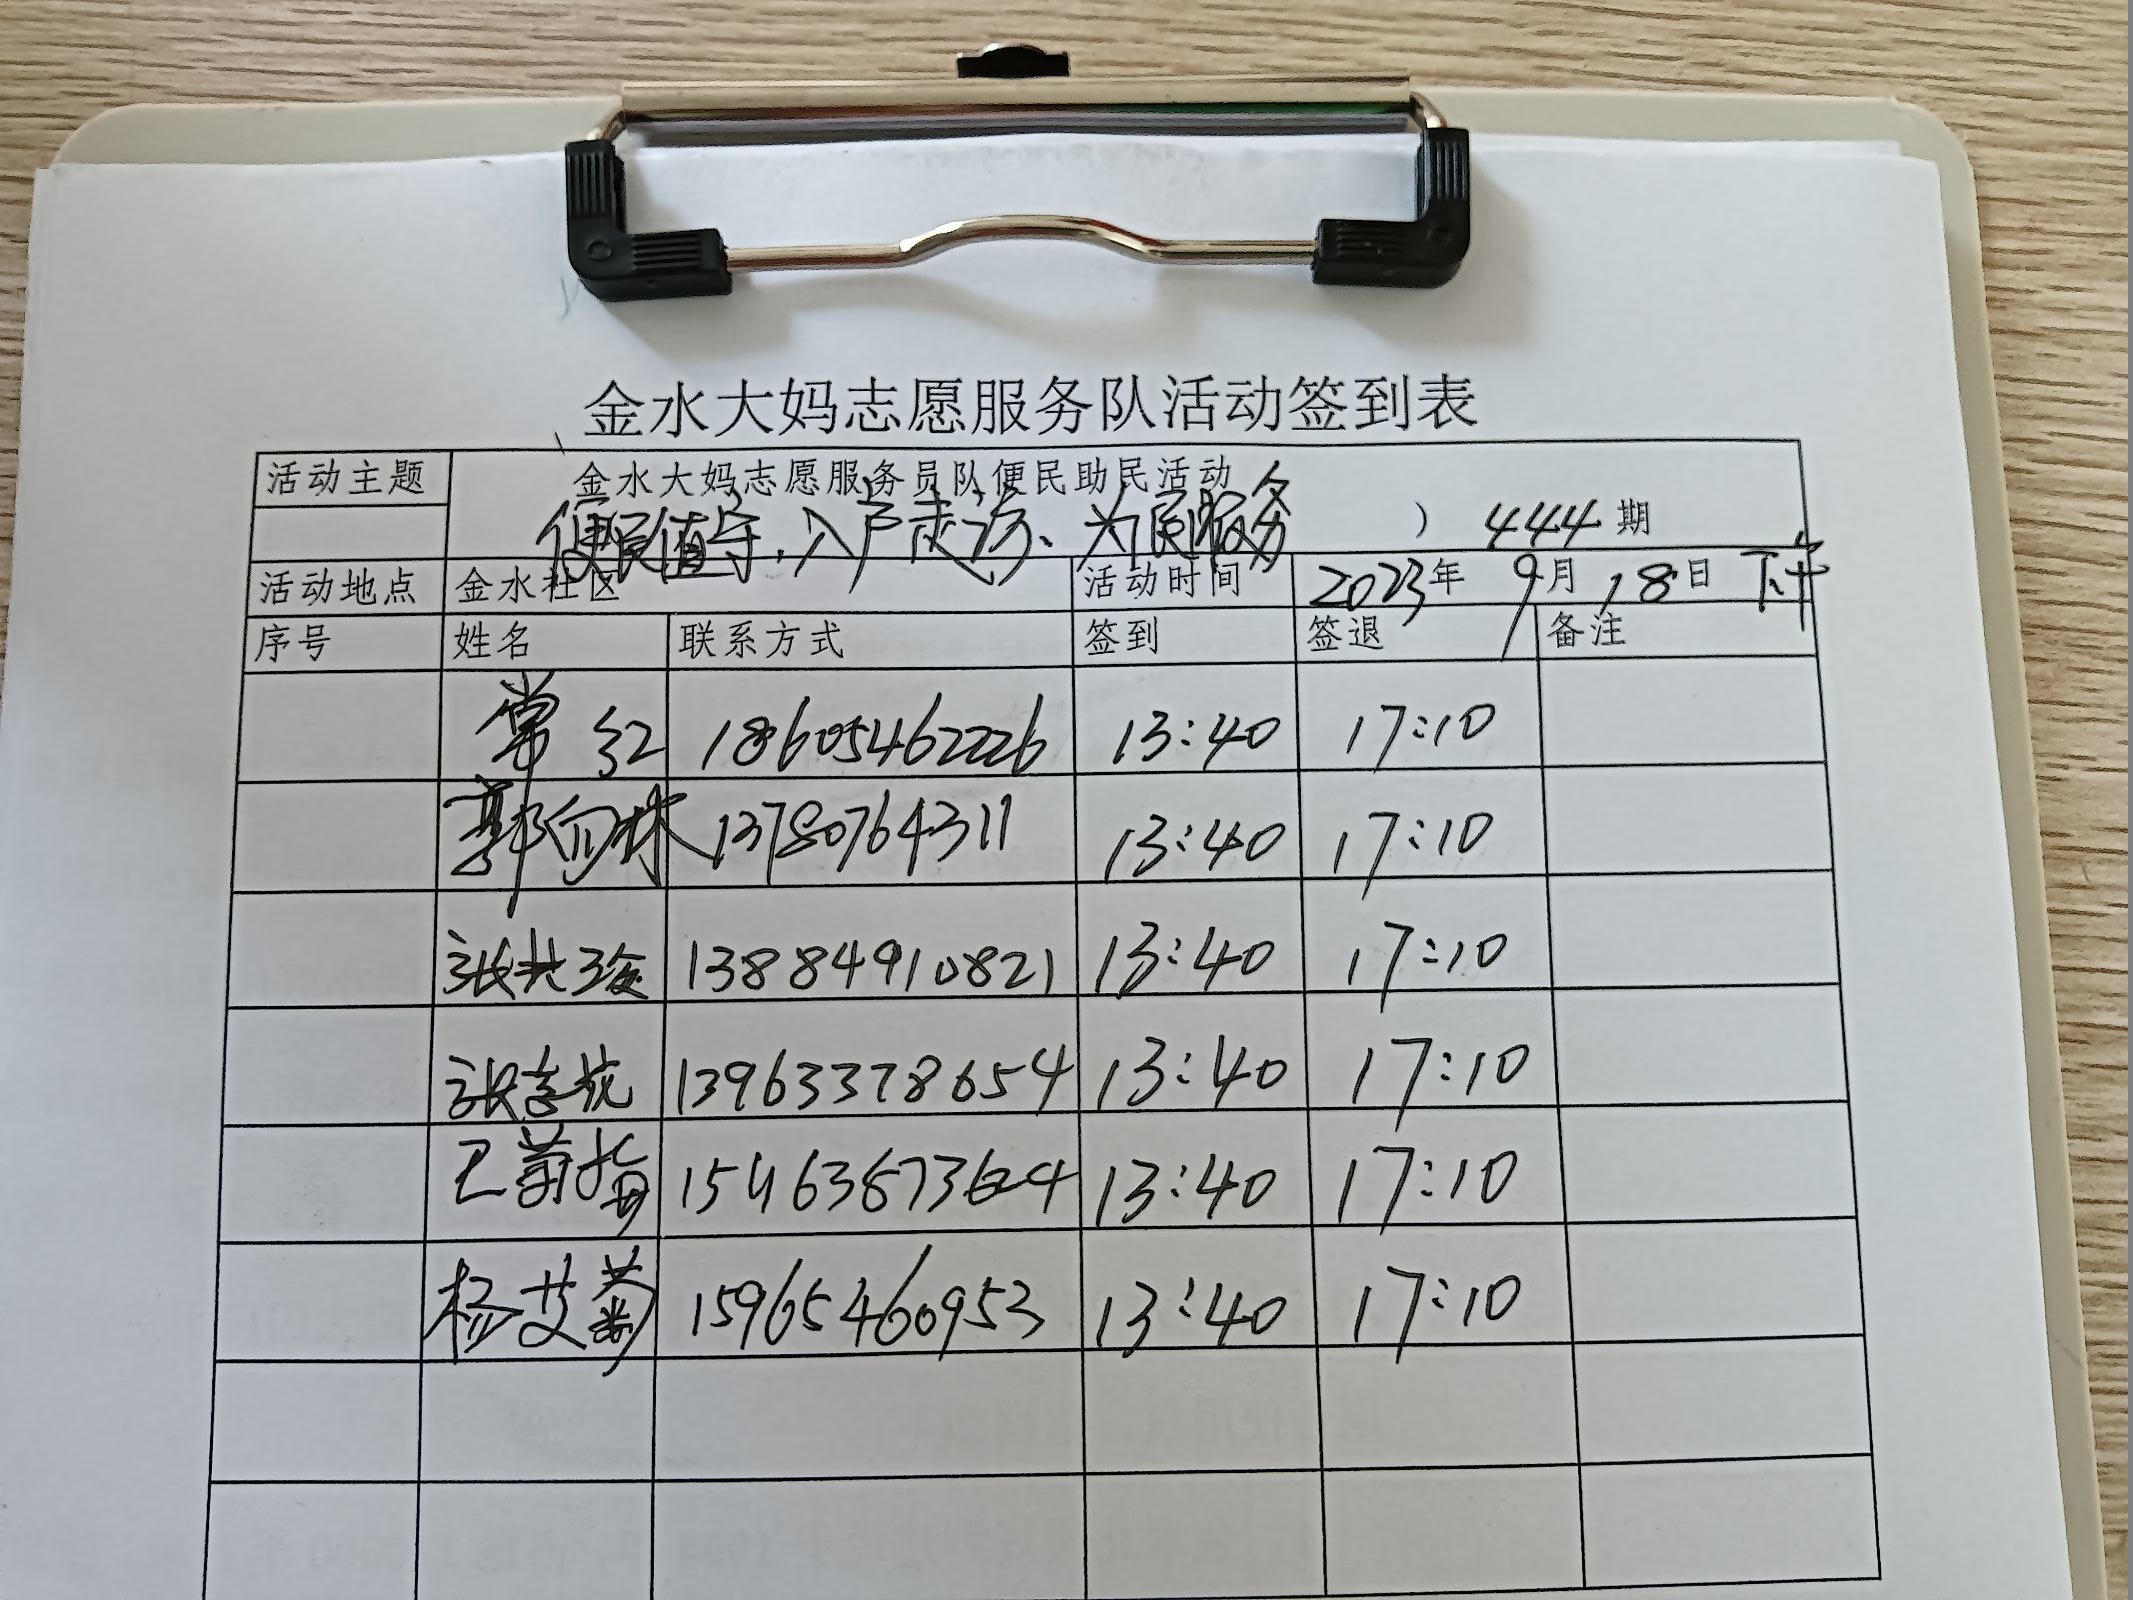 金水大妈志愿服务队活动签到表
活动主题 金水大妈志愿服务员队便民助民活动
便民值守，入户走访、为民服务 ） 444期
活动地点 金水社区 活动时间 2023年 9月 18日 下午
序号 姓名 联系方式 签到 签退 备注
常红 18605462226 13:40 17:10
郭向林 13780764311 13:40 17:10
张共玲 13884910821 13:40 17:10
张 13963378654 13:40 17:10
王 梅 13:40 17:10
杨艾菊 15965460953 13:40 17:10